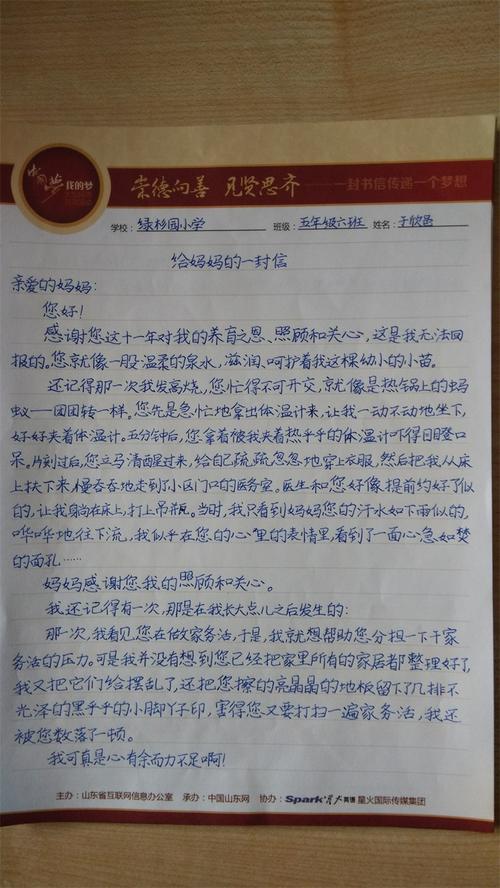 中国梦 我的梦
崇德向善 见贤思齐 一封书信传递一个梦想
学校: 绿杉园小学 班级: 五年级六班 姓名: 于欣邑
给妈妈的一封信
亲爱的妈妈:
您好!
感谢您这十一年对我的养育之恩、照顾和关心,这是我无法回
报的。您就像一股温柔的泉水,滋润、呵护着我这棵幼小的小苗。
还记得那一次我发高烧,您忙得不可开交,就像是热锅上的蚂
蚁——团团转一样。您先是急忙地拿出体温计来,让我一动不动地坐下,
好好夹着体温计。五分钟后,您拿着被我夹着热乎乎的体温计吓得目瞪口
呆。片刻过后,您立马清醒过来,给自己疏疏忽忽地穿上衣服,然后把我从床
上扶下来,慢吞吞地走到了小区门口的医务室。医生和您好像提前约好了似
的,让我躺在床上,打上吊瓶。当时,我只看到妈妈您的汗水如下雨似的,
哗哗地往下流,我似乎在您的心里的表情里,看到了一面心急如焚
的面孔……
妈妈感谢您我的照顾和关心。
我还记得有一次,那是在我长大点儿之后发生的:
那一次,我看见您在做家务活,于是,我就想帮助您分担一下干家
务活的压力。可是我并没有想到您已经把家里所有的家居都整理好了,
我又把它们给摆乱了,还把您擦的亮晶晶的地板留下了几排不
光泽的黑乎乎的小脚丫子印,害得您又要打扫一遍家务活,我还
被您数落了一顿。
我可真是心有余而力不足啊!
主办:山东省互联网信息办公室 承办:中国山东网 协办:Spark星火英语 星火国际传媒集团